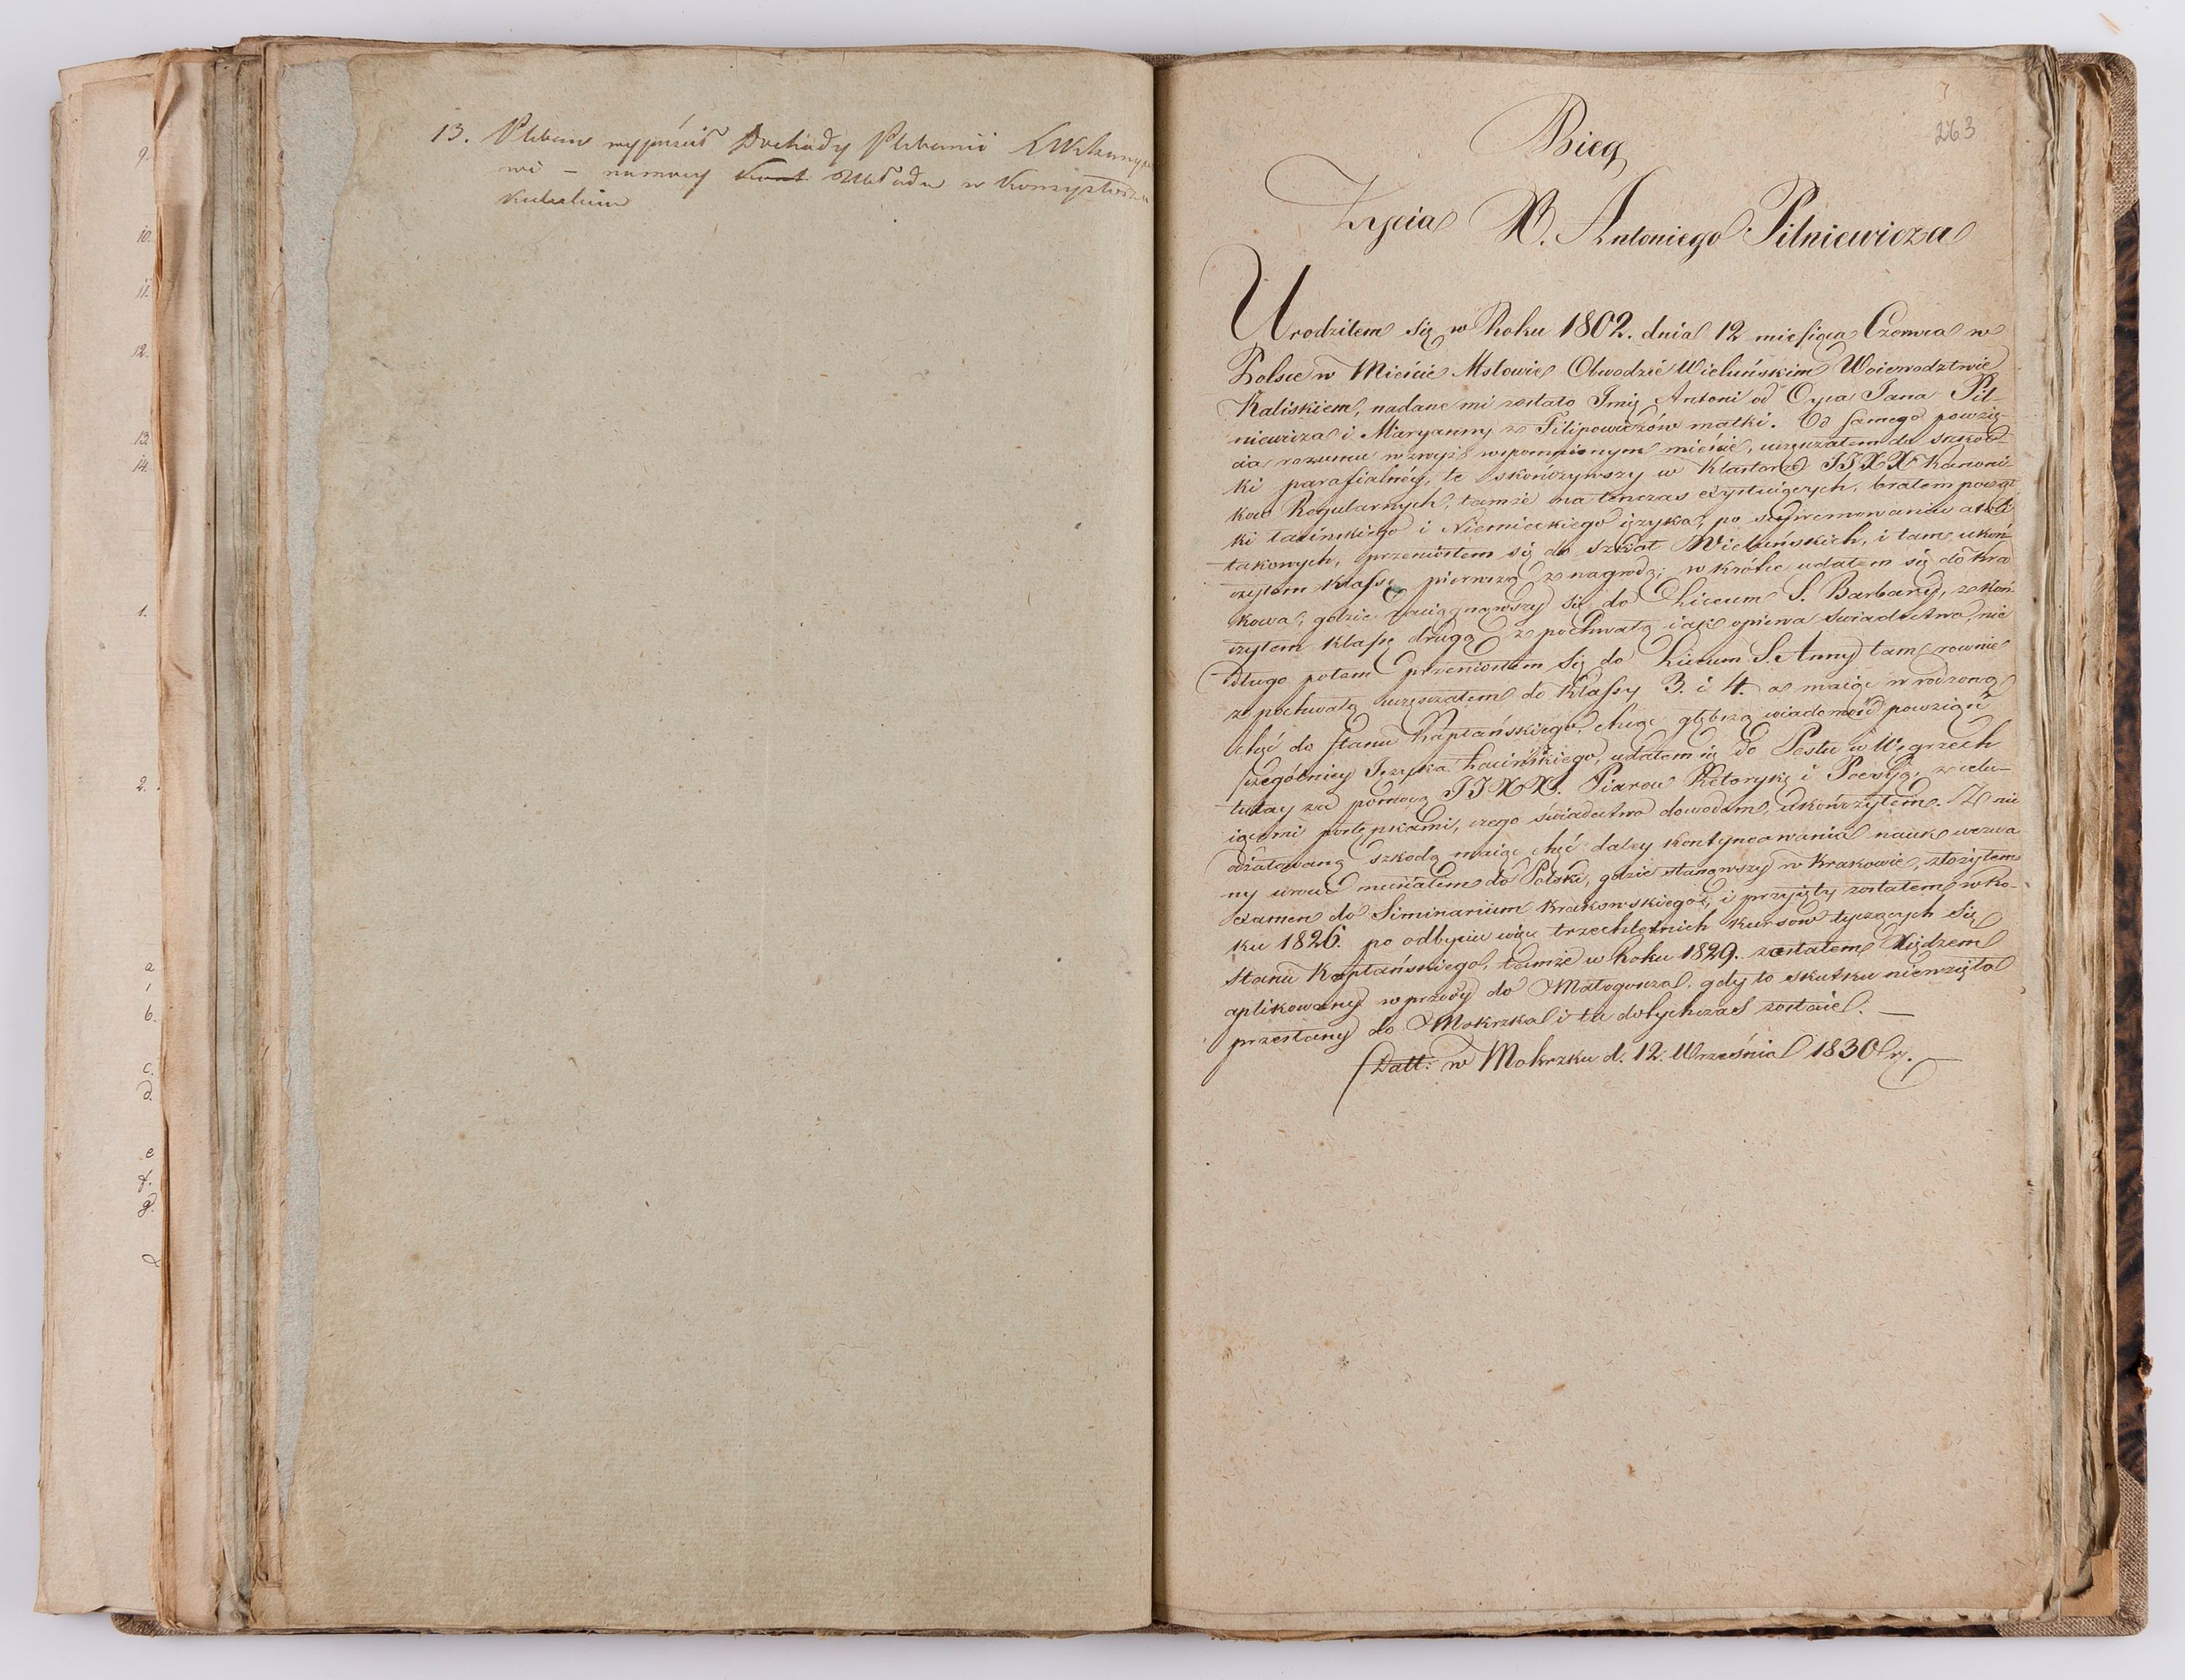 9.
10.
11.
12.
13.
14.
1.
2.
a
b.
c.
d.
e
f.
g.
13. Pleban wypuścił Dochody Plebanii
wi – umowy układu w Konsystorzu
263
Bieg
Życia X. Antoniego Pilniewicza
Urodziłem się w Roku 1802. dnia 12 miesiąca Czerwca w
Polsce w Mieście Mstowie Obwodzie Wieluńskim Woiewodztwie
Kaliskiem, nadane mi zostało Imię Antoni od Oyca Jana Pil-
niewicza i Maryanny z Filipowiczów matki. Od samego powzię-
cia rozumu w zwyż wspomnionym mieście, uczęszczałem do szkół-
ki parafialnéy, te skończywszy w Klasztorze JJXX Kanoni-
kow Regularnych, tamże na tenczas exystuiących, brałem począt
ki łacińskiego i Niemieckiego ięzyka, po
takowych, przeniosłem się do szkół Wieluńskich, i tam ukoń-
czyłem klassę pierwszą z nagrodą; w krótce udałem się do Kra
kowa, gdzie zaciągnąwszy się do Liceum S. Barbary, skoń-
czyłem klassę drugą z pochwałą iak opiewa świadectwo, nie
długo potem przeniosłem się do Liceum S. Anny tam rownie
z pochwałą uczęszczałem do klassy 3. i 4. a maiąc wrodzoną
chęć do stanu Kapłańskiego, chcąc głębszą wiadomość powziąść
szczególniey Języka Łacińskiego, udałem się do Pestu w Węgrzech
tutay za pomocą JJXX. Piarow Retorykę i Poezyą, z celu-
iącemi postępkami, czego świadectwa dowodem, ukończyłem. Z nie
odżałowaną szkodą maiąc chęć daley kontynuowania nauk wezwa
ny wrócić musiałem do Polski, gdzie stanąwszy w Krakowie, złożyłem
examen do Siminarium Krakowskiego, i przyięty zostałem w Ro-
ku 1826. po odbyciu więc trzechletnich kursow tyczących się
Stanu Kapłańskiego, tamże w Roku 1829. zostałem Xiędzem
aplikowany wprzódy do Małogoszcza, gdy to skutku niewzięło
przesłany do Mokrzka i tu dotychczas zostaie. —
Datt: w Mokrzku d. 12. Września 1830 r.